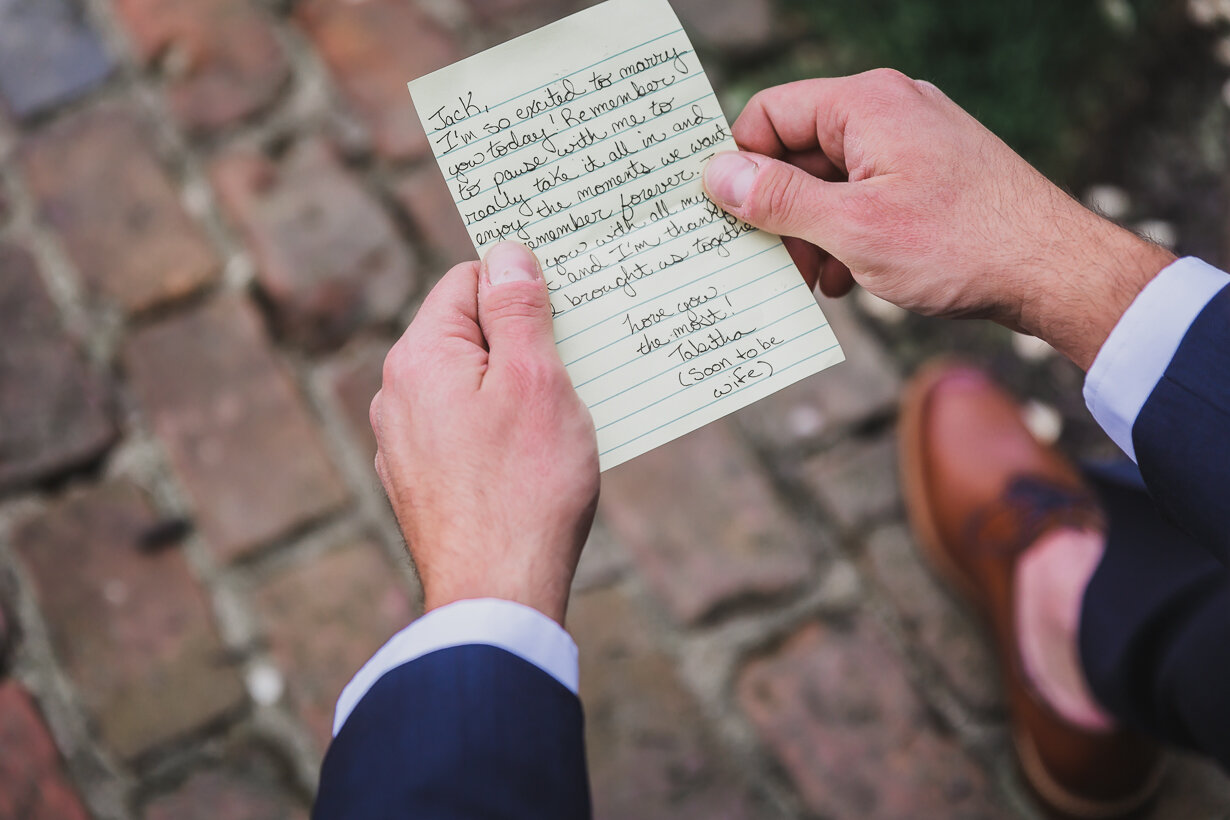 Jack,
I'm so excited to marry
you today! Remember
to pause with me to
really take it all in and
enjoy the moments we want
remember forever.
you with all my
and I'm
brought us together
Love you
the most!
Tabitha
(Soon to be
wife)